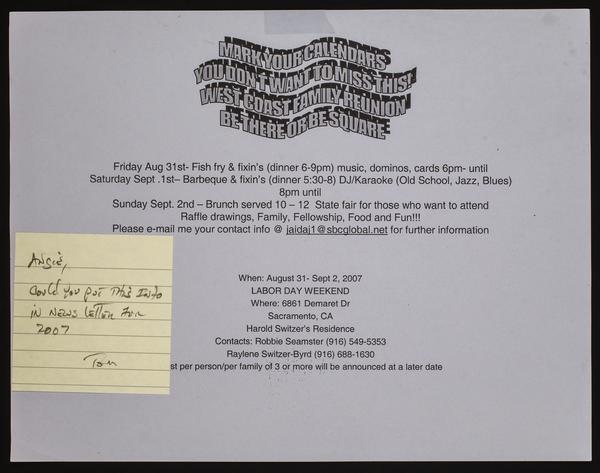 MARK YOUR CALENDARS
YOU DON'T WANT TO MISS THIS!
WEST COAST FAMILY REUNION
BE THERE OR BE SQUARE
Friday Aug 31st- Fish fry & fixin's (dinner 6-9pm) music, dominos, cards 6pm- until
Saturday Sept .1st– Barbeque & fixin's (dinner 5:30-8) DJ/Karaoke (Old School, Jazz, Blues)
8pm until
Sunday Sept. 2nd – Brunch served 10 – 12 State fair for those who want to attend
Raffle drawings, Family, Fellowship, Food and Fun!!!
Please e-mail me your contact info @ jaidaj1@sbcglobal.net for further information
Angie,
Could you put this Info
in News letter for
2007
Tom
When: August 31- Sept 2, 2007
LABOR DAY WEEKEND
Where: 6861 Demaret Dr
Sacramento, CA
Harold Switzer's Residence
Contacts: Robbie Seamster (916) 549-5353
Raylene Switzer-Byrd (916) 688-1630
st per person/per family of 3 or more will be announced at a later date